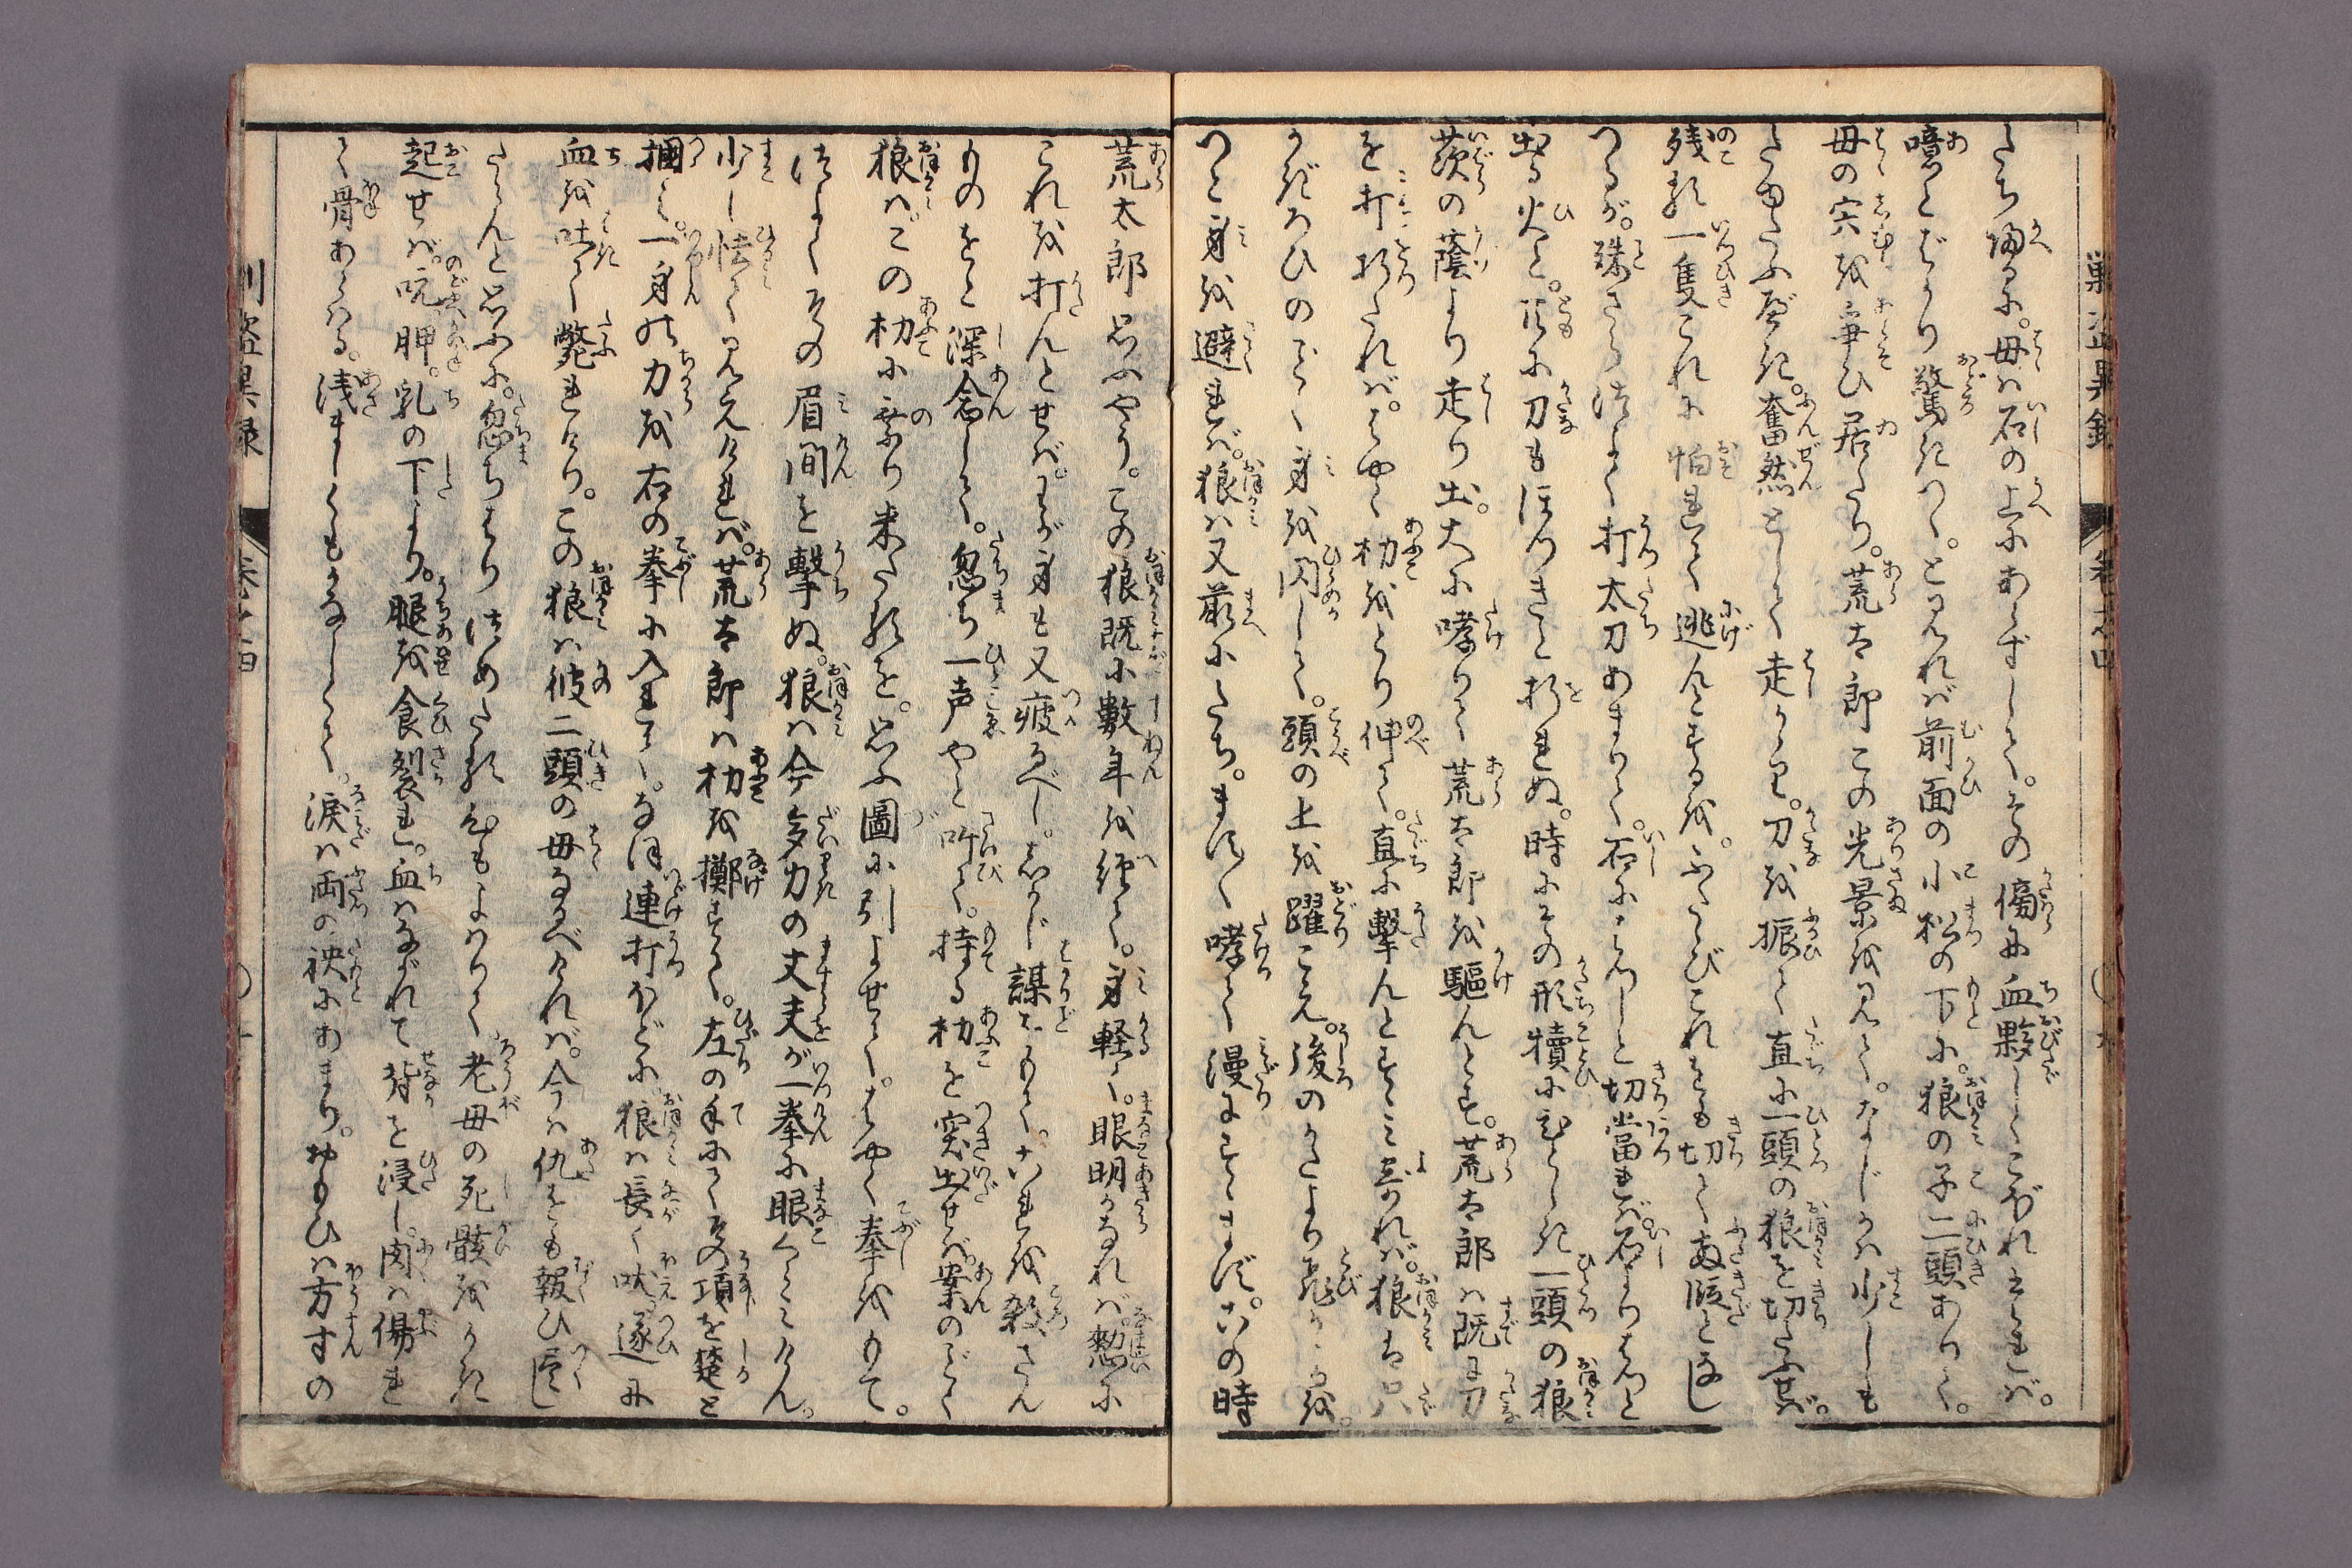 たち帰るに。母は石の上にあらずして。その傍に血夥しくこぼれしかば。
噫とばかり驚きつゝ。と見れば前面の小松の下に。狼の子二頭ありて。
母の宍を争ひ居たり。荒太郎この光景を見て。なじかは少しも
たゆたふべき。奮然として走りかゝり。刀を振て直に一頭の狼を切たふせば。
残る一隻これに怕れて逃んとするを。ふたゝびこれをも切て両段となし
つるが。殊さら つよく打太刀あまりて。石に はつしと切当れば。石よりはつと
出る火と。ともに刀もほつきと折れぬ。時にその形犢にひとしき一頭の狼
茨の蔭より走り出。大に哮りて荒太郎を駆んとす。荒太郎は既に刀
を打折たれば。はやく朸をとり伸て。直に撃んとすゝみよれば。狼は只
かげろひのごとく身を閃して。頭の上を躍こえ。後のかたより飛かゝるを。
つと身を避れば。狼は又前にたち。ます〳〵哮て漫にすゝまず。この時
荒太郎思ふやう。この狼既に数年を経て。身軽く。眼明かなれば憖に
これを打んとせば。わが身も又疲るべし。しかじ謀をもて。これを殺さん
ものをと深念して。忽ち一声やと呌て。持る朸を突出せば。案のごとく
狼は。この朸に乗り来たるを。思ふ図に引よせて。はやく拳をもて。
つよくその眉間を撃ぬ。狼は今多力の丈夫が一拳に眼くらみけん。
少し怯て見えければ。荒太郎は朸を擲すて。左の手にてその項を楚と
掴み。一身の力を右の拳に入れて。なほ連打ほどに。狼は長く吠遂に
血を吐て斃れけり。この狼は彼二頭の母なるべければ。今は仇をも報ひ尽し
たらんと思ふに。忽ちはり つめたる気もよわりて。老母の死骸をかき
起せば。吭胛。乳の下より。腿を食裂れ。血はながれて背を浸し。肉は傷れ
て骨あらはる。浅ましくもかなしくて。涙は両の袂にあまり。おもひは方寸の
巣盗異録
巻之四